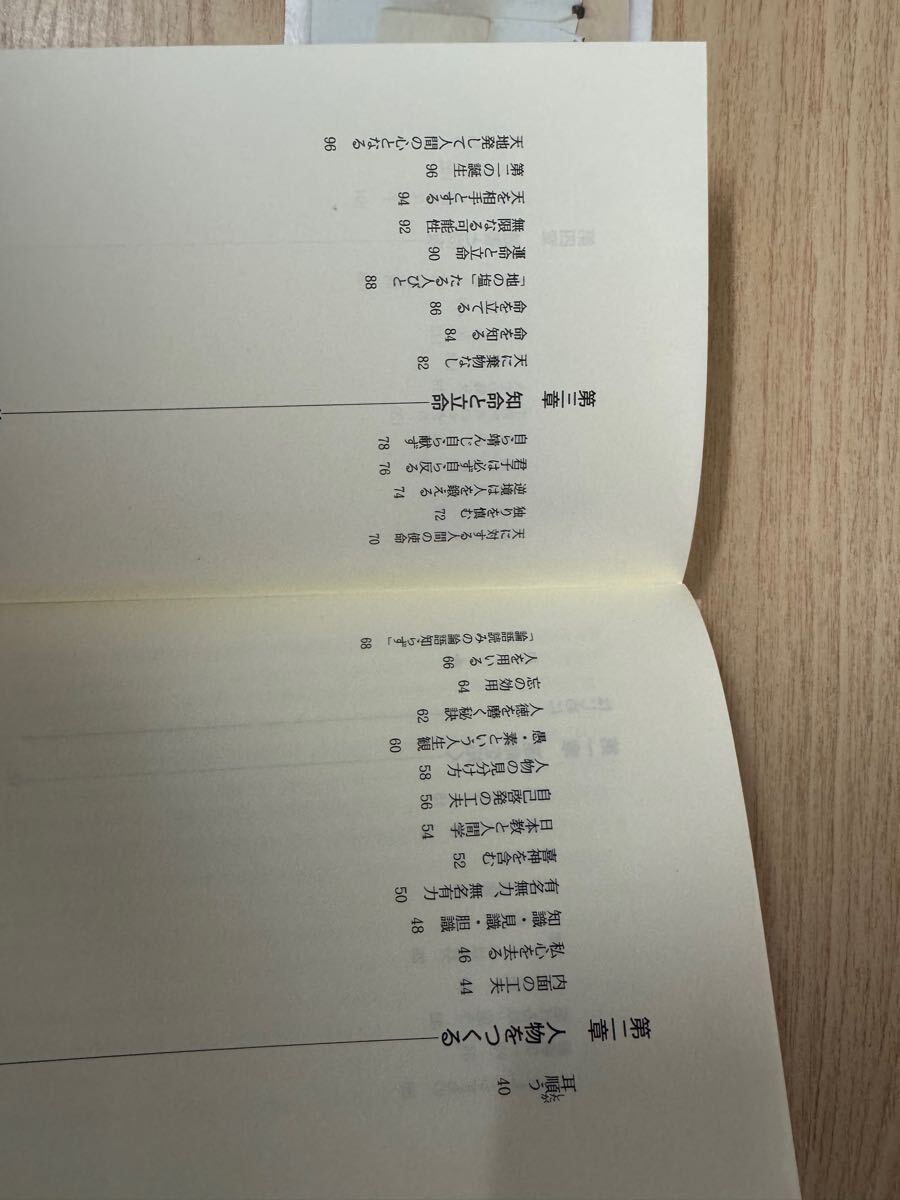 耳順う 40
したが
第二章 人物をつくる
内面の工夫 44
私心を去る 46
知識・見識・胆識 48
有名無力、無名有力 50
喜神を含む 52
日本教と人間学 54
自己啓発の工夫 56
人物の見分け方 58
愚・素という人生観 60
人徳を磨く秘訣 62
忘の効用 64
人を用いる 66
「論語読みの論語知らず」 68
天に対する人間の使命 70
独りを慎む 72
逆境は人を鍛える 74
君子は必ず自ら反る 76
自ら靖んじ自ら献ず 78
第三章 知命と立命
天に棄物なし 82
命を知る 84
命を立てる 86
「地の塩」たる人びと 88
運命と立命 90
無限なる可能性 92
天を相手とする 94
第二の誕生 96
天地発して人間の心となる 96